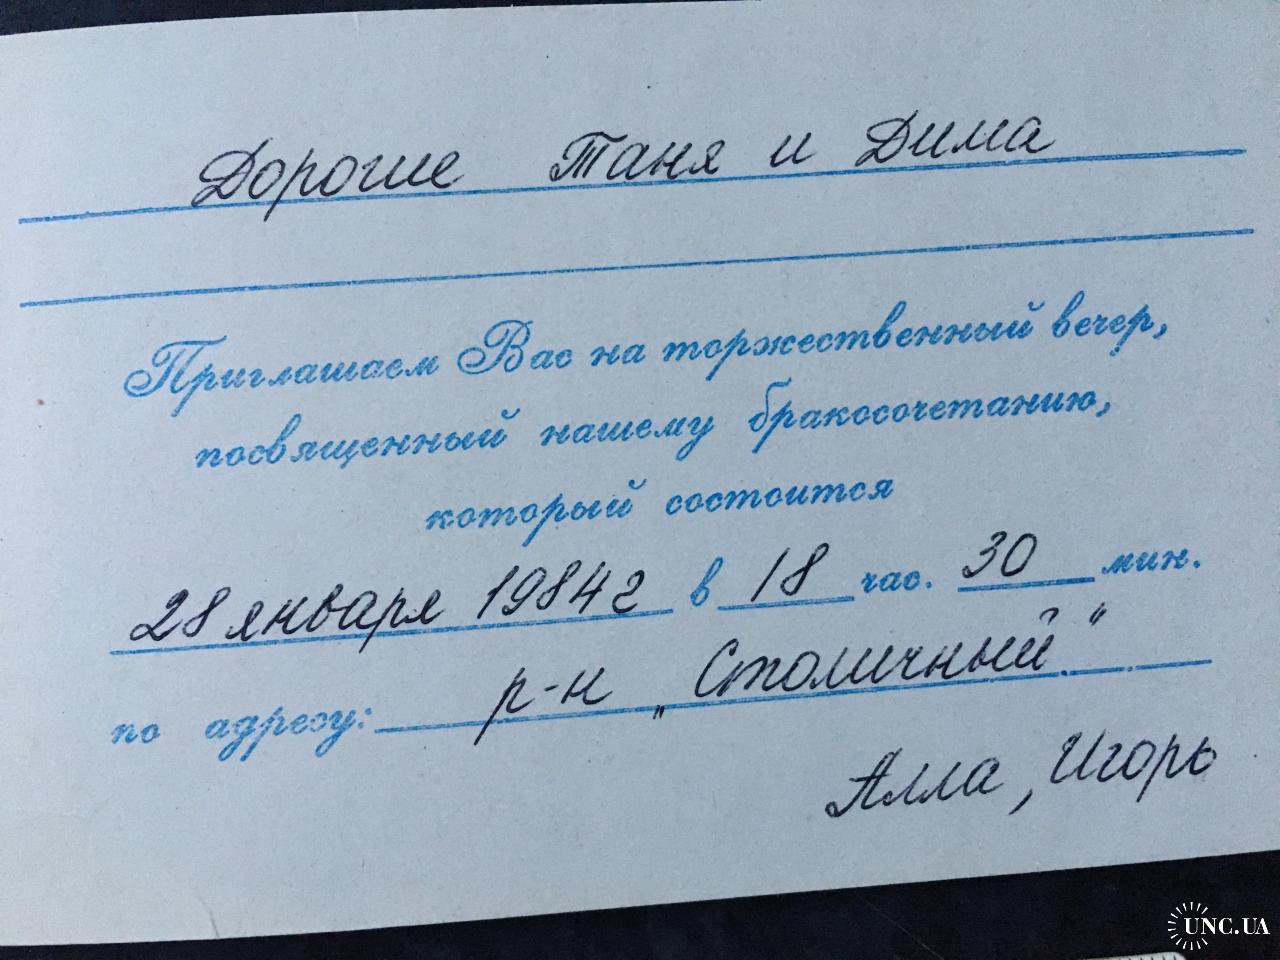 Дорогие Таня и Дима
Приглашаем Вас на торжественный вечер,
посвященный нашему бракосочетанию,
который состоится
28 января 1984г в 18 час. 30 мин.
по адресу: р-н „Столичный“
Алла, Игорь
UNC.UA